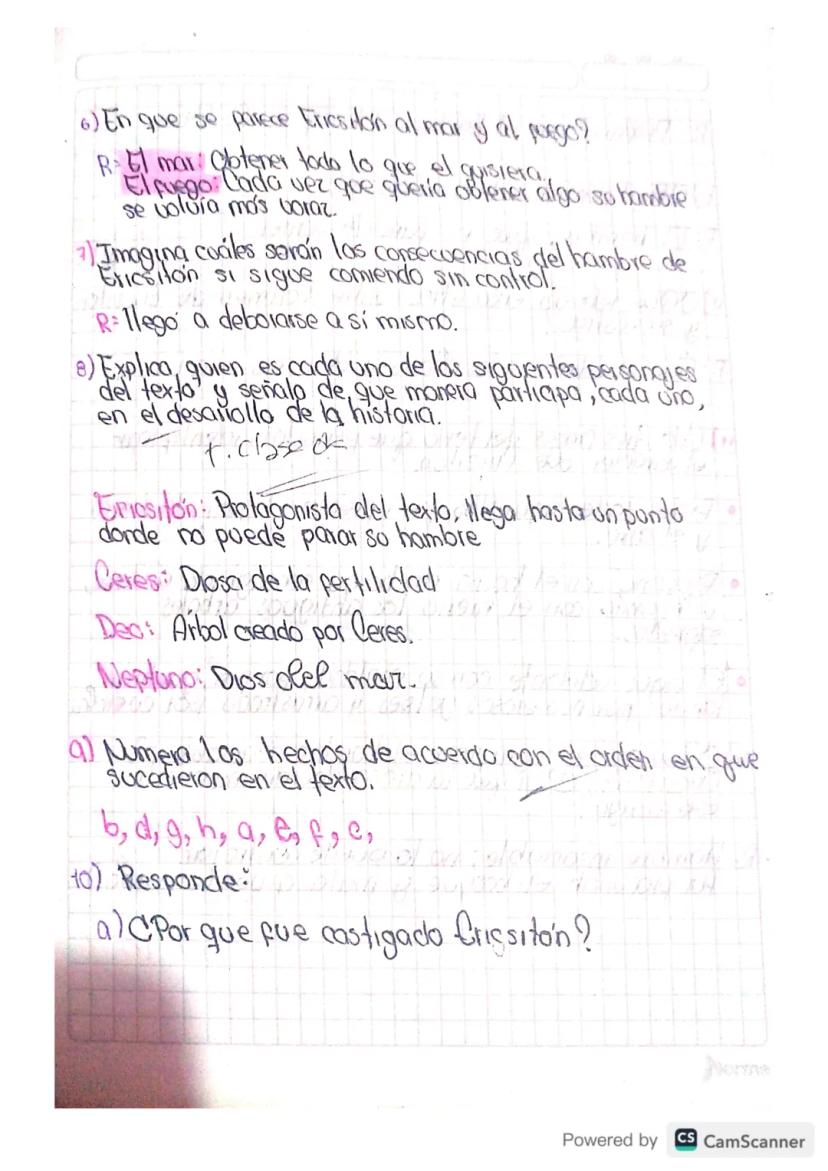 6) En que se parece Ericsitón al mar y al fuego?
R= El mar: Obtener todo lo que el quisiera.
El fuego: Cada vez que queria obtener algo su hambre
se volvia más voraz.
7) Imagina cuáles serán las consecuencias del hambre de
Ericsitón si sigue comiendo sin control.
R= llegó a deborarse a sí mismo.
8) Explica, quien es cada uno de los siguientes personajes
del texto y señala de que manera participa, cada uno,
en el desarrollo de la historia.
Ericsitón: Protagonista del texto, llega hasta un punto
donde no puede parar su hambre
Ceres: Diosa de la fertilidad
Deo: Arbol creado por Ceres.
Neptuno: Dios del mar.
9) Numera los hechos de acuerdo con el orden en que
sucedieron en el texto.
b, d, g, h, a, e, f, c,
10) Responde:
a) ¿Por que fue castigado Ericsitón?
Norma
Powered by CS CamScanner